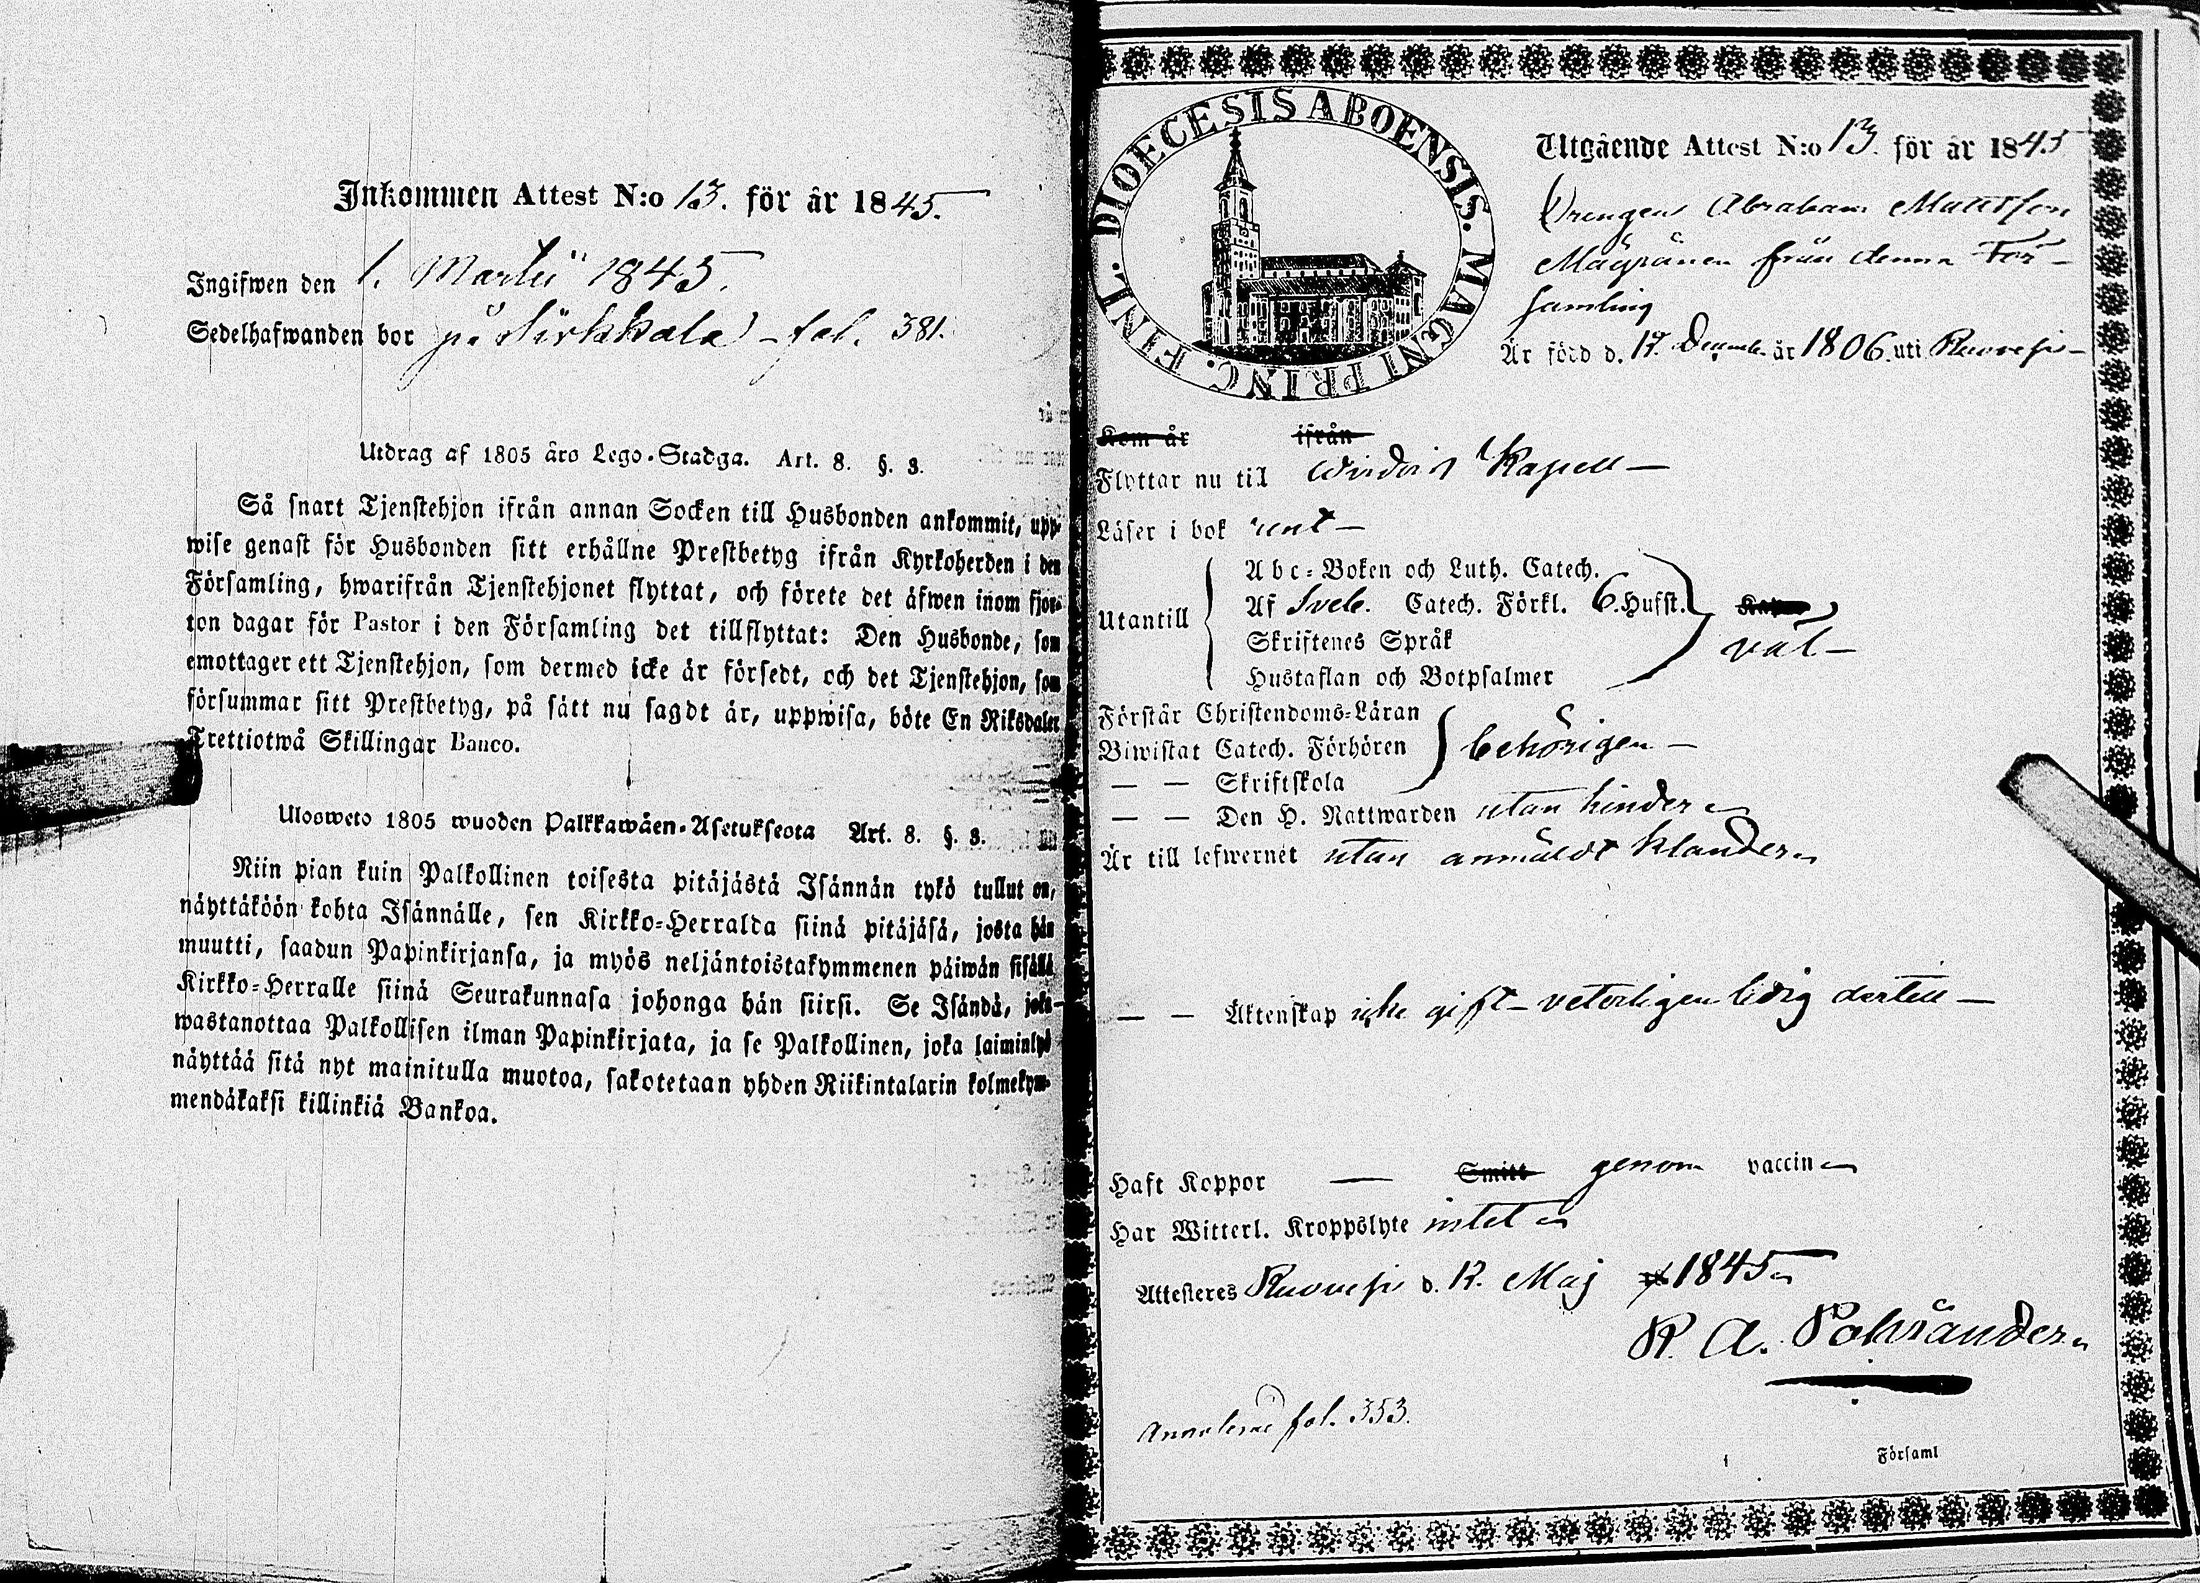 Inkommen Attest N:o 13. för år 1845.
Ingifwen den 1. Martii 1845.
Sedelhafwanden bor på Sirkkala - fol. 381.
Utdrag af 1805 års Lego-Stadga. Art. 8. §. 3.
Så snart Tjenstehjon ifrån annan Socken till Husbonden ankommit, upp-
wise genast för Husbonden sitt erhållne Prestbetyg ifrån Kyrkoherden i den
Församling, hwarifrån Tjenstehjonet flyttat, och förete det äfwen inom fjor-
ton dagar för Pastor i den Församling det tillflyttat: Den Husbonde, som
emottager ett Tjenstehjon, som dermed icke är försedt, och det Tjenstehjon, som
försummar sitt Prestbetyg, på sätt nu sagdt är, uppwisa, böte En Riksdaler
Trettiotwå Skillingar Banco.
Uloswето 1805 wuoden Palkkawäen-Asetuksesta Art. 8. §. 3.
Niin pian kuin Palkollinen toisesta pitäjästä Isännän tykö tullut on,
näyttäköön kohta Isännälle, sen Kirkko-Herralda siinä pitäjäsä, josta hän
muutti, saadun Papinkirjansa, ja myös neljäntoistakymmenen päiwän sisällä
Kirkko-Herralle siinä Seurakunnasa johonga hän siirsi. Se Isändä, joka
wastanottaa Palkollisen ilman Papinkirjata, ja se Palkollinen, joka laiminlyö
näyttää sitä nyt mainitulla muotoa, sakotetaan yhden Riikintalarin kolmekym-
mendäkaksi killinkiä Bankoa.
DIOECESIS ABOENSIS. MAGNI PRINC. FINL.
Utgående Attest N:o 13. för år 1845
Drengen Abraham Mattsson
från denna För-
samling
Är född d. 17. December år 1806. uti Ruovesi-
Kom år ifrån
Flyttar nu till Kapell-
Läser i bok rent-
Utantill
Abc-Boken och Luth. Catech.
Af Sveb. Catech. Förkl. 6. Husst.
Skriftenes Språk
Hustaflan och Botpsalmer
väl-
Förstår Christendoms-Läran
Biwistat Catech. Förhören behörigen-
— — Skriftskola
— — Den H. Nattwarden utan hinder
Är till lefwernet utan anmäldt klander
— — Äktenskap icke gift- veterligen ledig dertill-
Haft Koppor — Smitt genom vaccin
Har Witterl. Kroppslyte intet
Attesteras Ruovesi d. 12. Maj 1845
K. A. Pohränder
fol. 353.
Församl